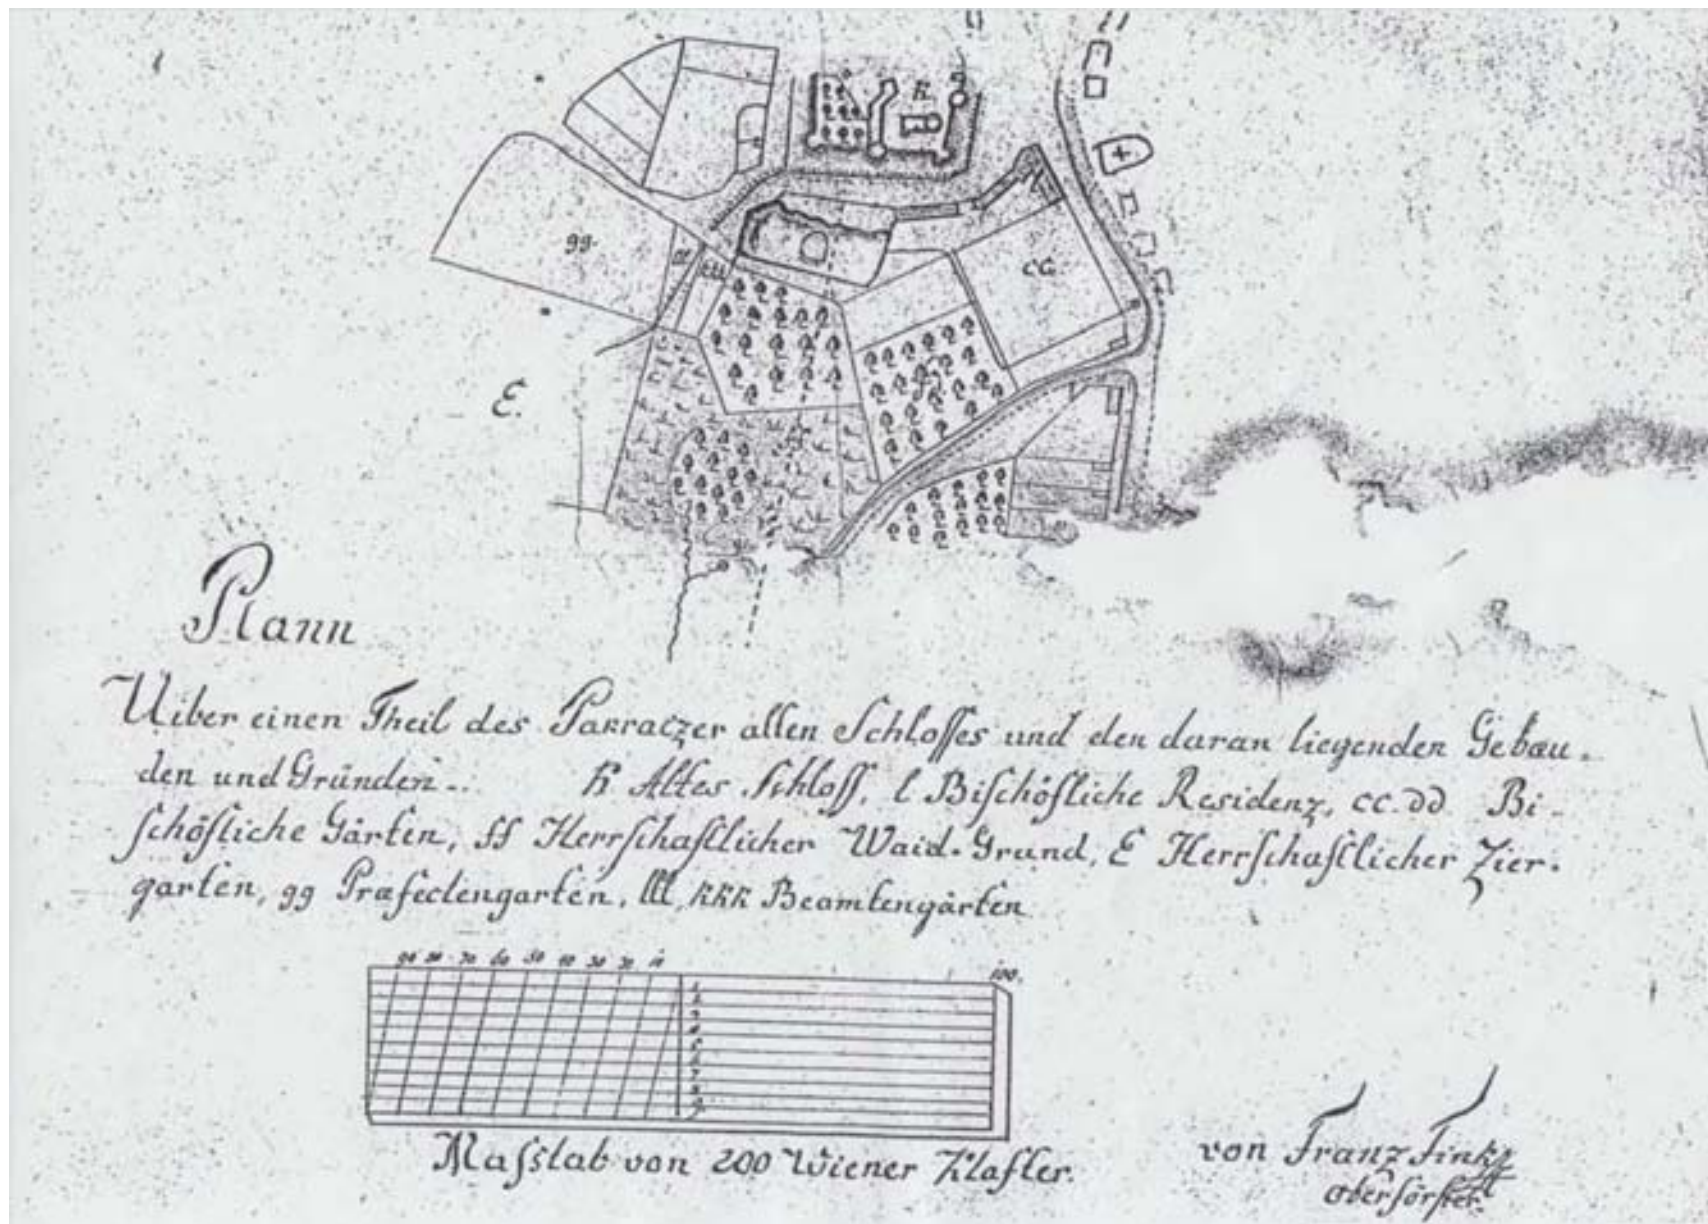 K
gg.
cc.
lll
ff
E.
Plann
Uiber einen Theil des Pakraczer alten Schloſſes und den daran liegenden Gebäu-
den und Gründen.. K Altes Schloſſ, l Biſchöfliche Residenz, cc. dd Bi-
ſchöfliche Gärten, ff Herrſchaftlicher Waid-Grund, E Herrſchaftlicher Zier-
garten, gg Præfectengarten, lll, kkk Beamtengärten
90 80 70 60 50 40 30 20 10 100.
1
2
3
4
5
6
7
8
9
Maſſtab von 200 Wiener Klafter.
von Franz Fink
oberförſter.